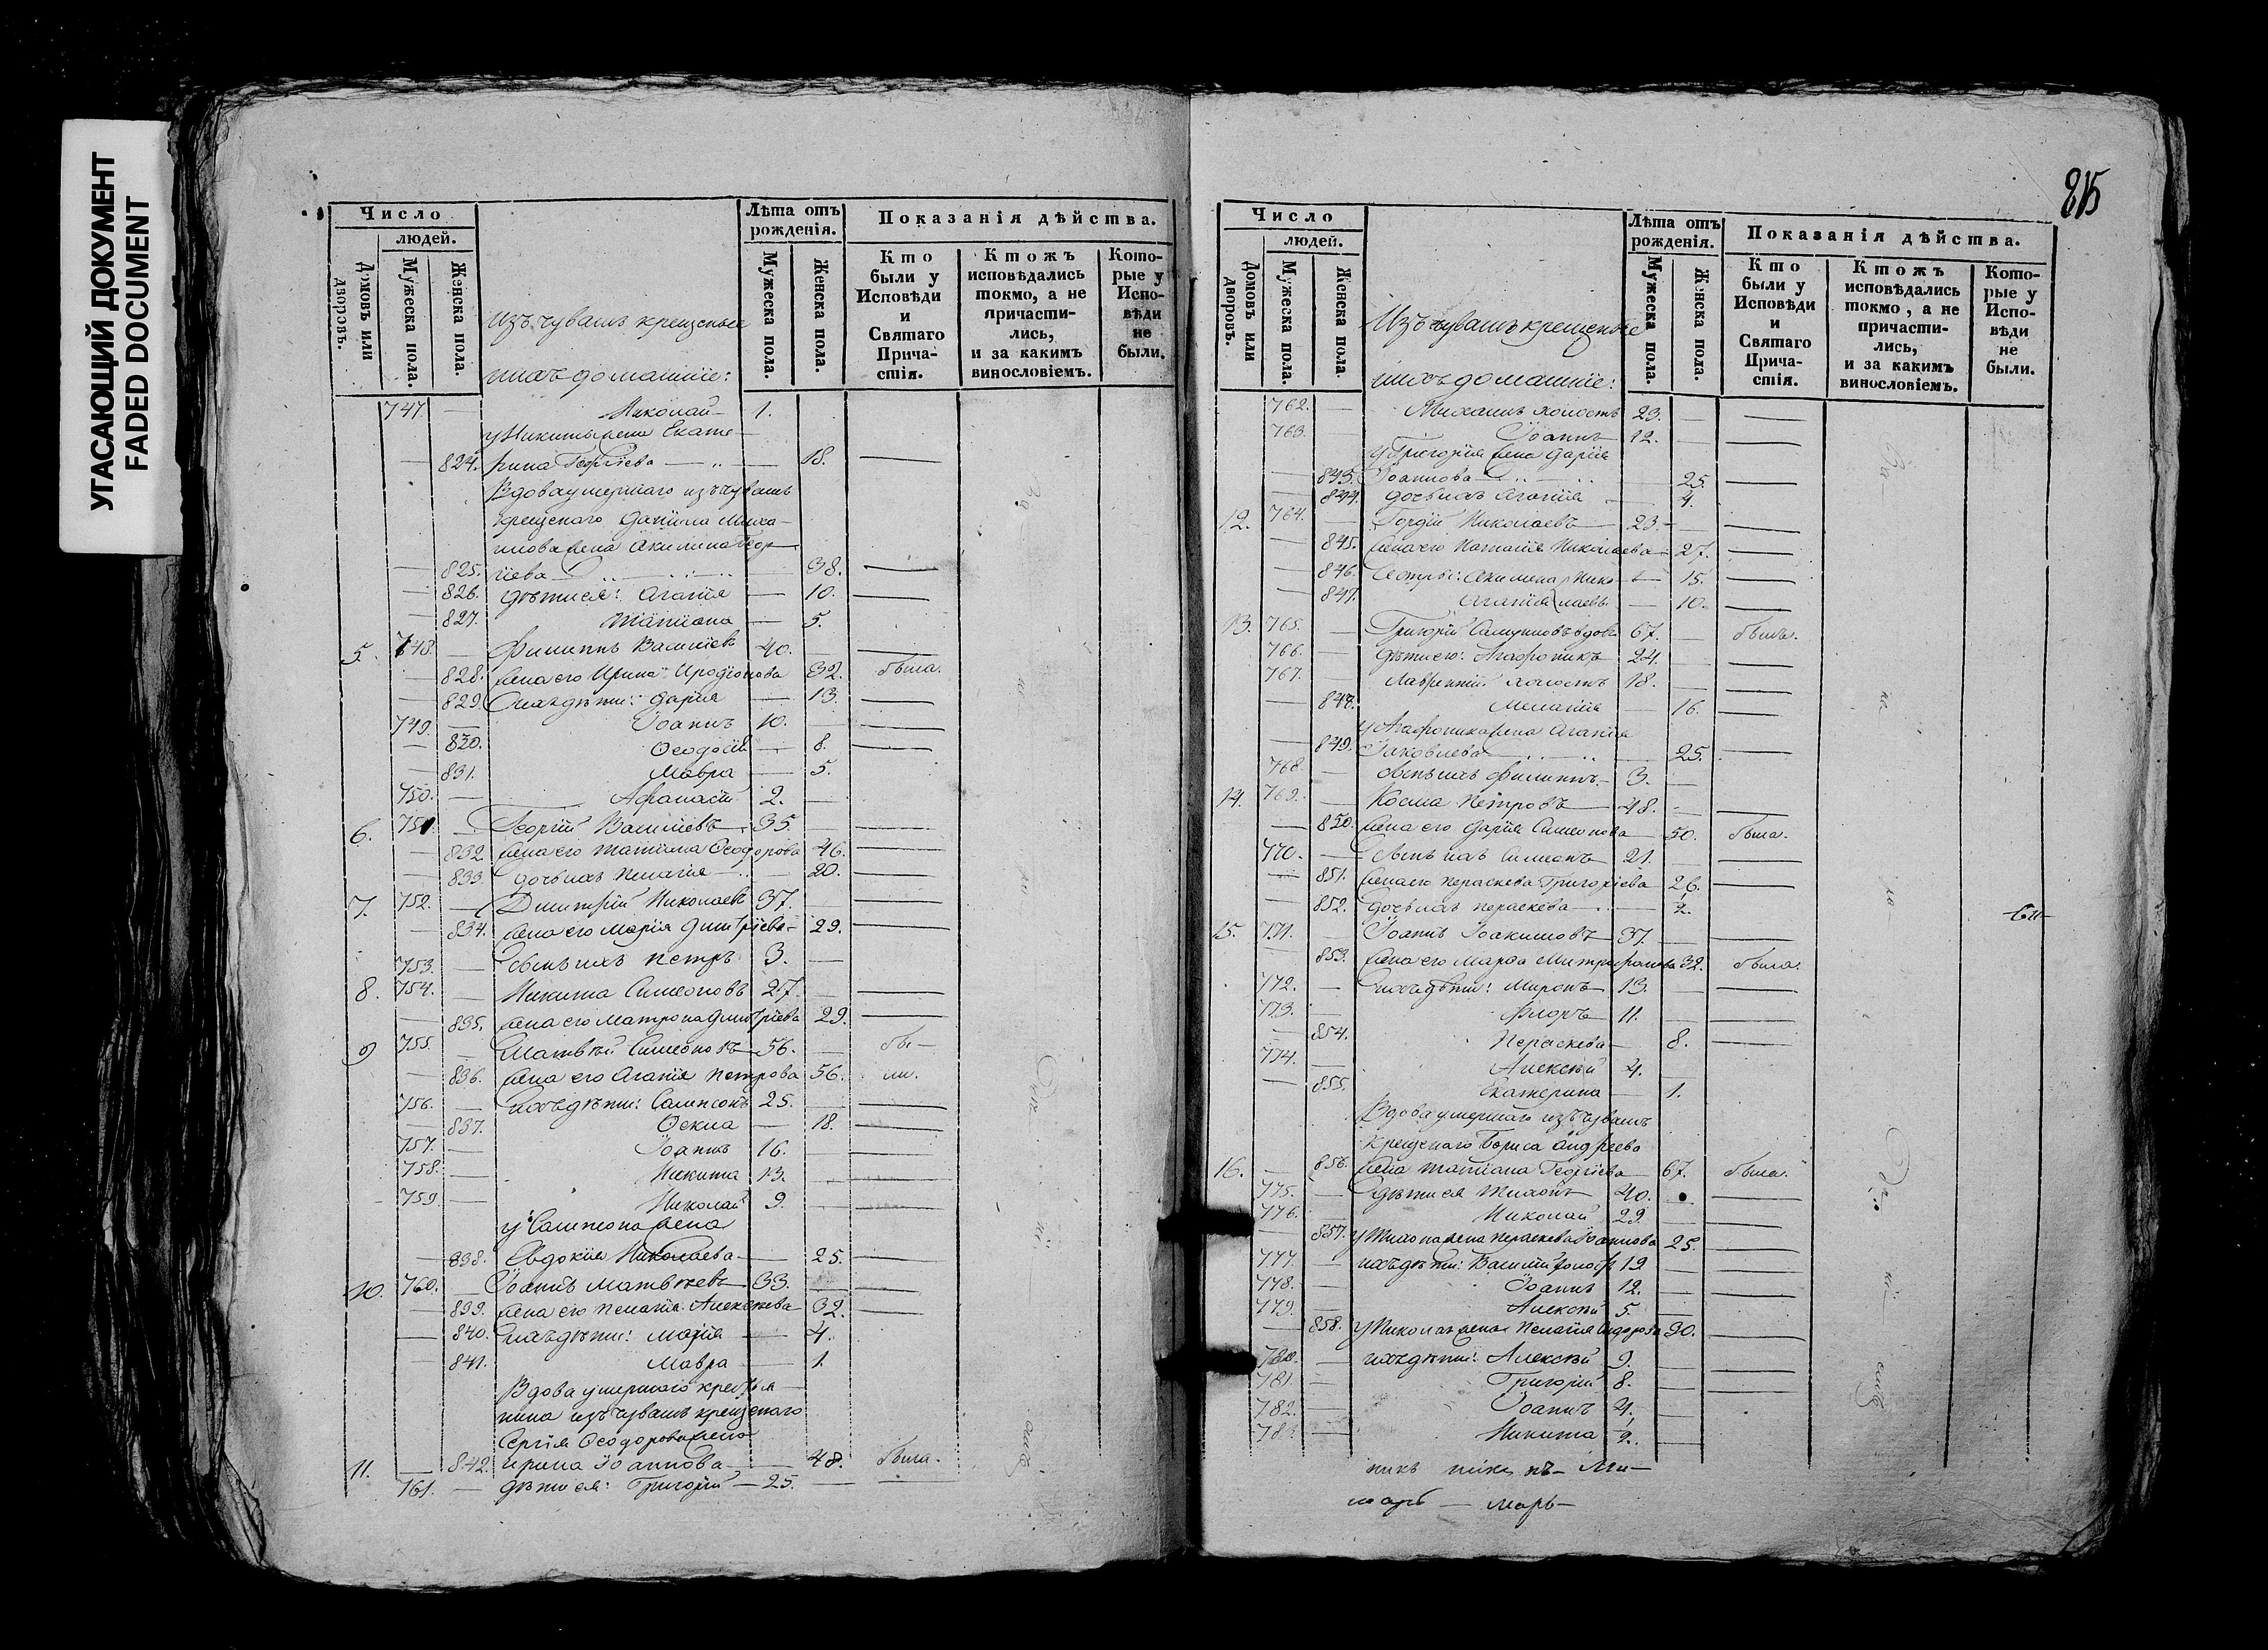 УГАСАЮЩИЙ ДОКУМЕНТ
FADED DOCUMENT
Число
людей.
Домовъ или дворовъ.
Мужеска пола.
Женска пола.
Изъ чувашъ крещеные
и ихъ домашніе:
Лѣта отъ рожденія.
Мужеска пола.
Женска пола.
Показанія дѣйства.
Кто были у Исповѣди и Святаго Причастія.
Ктожъ исповѣдались токмо, а не причастились, и за какимъ винословіемъ.
Которые у Исповѣди не были.
747. — Николай — 1.
у Никиты жена Екате-
— 824. рина Георгіева — 18. —
Вдова умершаго изъ чувашъ
крещенаго Даніила Миха-
илова жена Акилина Геор-
— 825. гіева — 38. —
— 826. дѣти ея: Агаѳія — 10. —
— 827. Татіана — 5.
5. 748. — Филиппъ Васильевъ 40. — —
— 828. жена его Ирина Иродіонова 32. была.
— 829. ихъ дѣти: Дарія — 13. —
749. — Іоаннъ 10. — —
— 830. Ѳеодосія — 8. —
— 831. Мавра — 5.
750. — Афанасій 2. —
6. 751. — Георгій Васильевъ 35. — —
— 832. жена его Татіана Ѳеодорова 46. —
— 833. дочь ихъ Пелагія — 20. —
7. 752. — Димитрій Николаевъ 37. — —
— 834. жена его Марія Димитріева 29. —
753. — сынъ ихъ Петръ 3. —
8. 754. — Никита Симеоновъ 27. — —
— 835. жена его Матрона Димитріева 29. —
9 755. — Матвѣй Симеоновъ 56. — бы-
— 836. жена его Агаѳія Петрова 56. ли.
756. — ихъ дѣти: Сампсонъ 25. — —
— 837. Ѳекла — 18. —
757. — Іоаннъ 16. — —
758. — Никита 13. — —
759. — Николай 9. — —
у Сампсона жена
— 838. Евдокія Николаева — 25. —
10. 760. — Іоаннъ Матвѣевъ 33. — —
— 839. жена его Пелагія Алексѣева 32. —
— 840. ихъ дѣти: Марія — 4.
— 841. Мавра — 1.
Вдова умершаго крестья-
нина изъ чувашъ крещенаго
Сергія Ѳеодорова жена
11. — 842. Ирина Іоаннова — 48. была.
761. — дѣти ея: Григорій — 25. — —
215
Число
людей.
Домовъ или дворовъ.
Мужеска пола.
Женска пола.
Изъ чувашъ крещеные
и ихъ домашніе:
Лѣта отъ рожденія.
Мужеска пола.
Женска пола.
Показанія дѣйства.
Кто были у Исповѣди и Святаго Причастія.
Ктожъ исповѣдались токмо, а не причастились, и за какимъ винословіемъ.
Которые у Исповѣди не были.
762. — Михаилъ холостъ 23. — —
763. — Іоаннъ 12. — —
у Григорія жена Дарія
— 843. Іоаннова — 25. —
— 844. дочь ихъ Агаѳія — 4.
12. 764. — Гордій Николаевъ — 23. — —
— 845. жена его Наталія Николаева 27. —
— 846. Сестры: Акилина Нико- 15. —
— 847. Агаѳія лаевы — 10. —
13. 765. — Григорій вдовъ 67. — былъ.
766. — дѣти его: Агафоникъ 24. — —
767. — Лаврентій холостъ 18. — —
— 848. Меланія — 16. —
у Агафоника жена Агаѳія
— 849. Іаковлева — 25. —
768. — сынъ ихъ Филиппъ 3. —
14. 769. — Косма Петровъ 48. — —
— 850. жена его Дарія Симеонова 50. была.
770. — сынъ ихъ Симеонъ 21. — —
— 851. жена его Параскева Григоріева 26. —
— 852. дочь ихъ Параскева — 2.
15. 771. — Іоаннъ Іоакимовъ 37. — —
— 853. жена его Марѳа Митрофанова 32. была.
772. — ихъ дѣти: Миронъ 13. — —
773. — Флоръ 11. —
— 854. Параскева — 8. —
774. — Алексѣй 4. —
— 855. Екатерина — 1.
Вдова умершаго изъ чувашъ
крещенаго Бориса Андреева
16. — 856. жена Татіана Георгіева 67. была.
775. — дѣти ея Тихонъ 40. —
776. — Николай 29. —
— 857. у Тихона жена Параскева Іоаннова 25. —
777. — ихъ дѣти: Василій холостъ 19 — —
778. — Іоаннъ 12. — —
779. — Алексѣй 5. —
— 858. у Николая жена Пелагія 30. —
780. — ихъ дѣти: Алексѣй 9. — —
181. — Григорій 8. — —
782. — Іоаннъ 4. —
— Никита 2. —